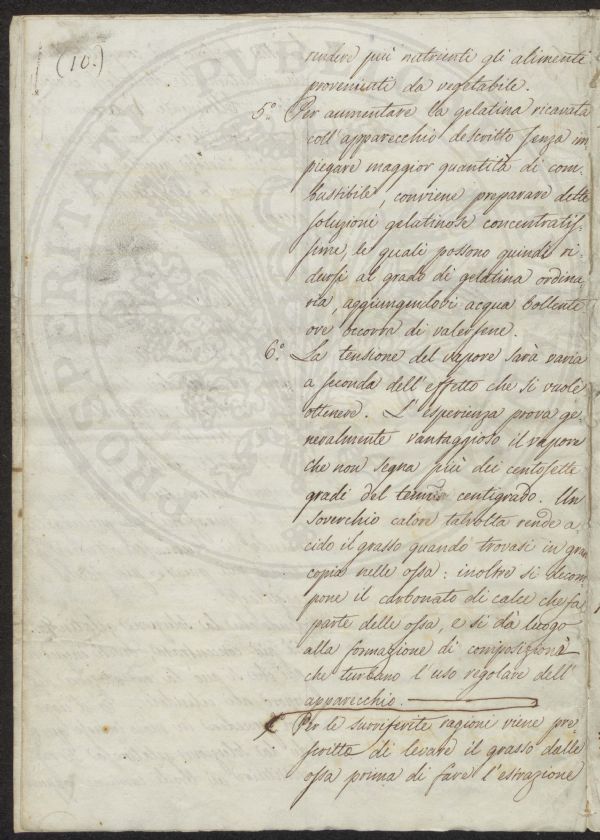 (10.)
rendere più nutrienti gli alimenti
provenienti da vegetabile.
5.° Per aumentare la gelatina ricavata
coll'apparecchio descritto senza im
piegare maggior quantità di com-
bustibile, conviene preparare dette
soluzioni gelatinose concentratis-
sime, le quali possono quindi ri-
dursi al grado di gelatina ordina
ria, aggiungendovi acqua bollente
ove occorra di valersene.
6.° La tensione del vapore sarà varia
a seconda dell'effetto che si vuole
ottenere. L'esperienza prova ge-
neralmente vantaggioso il vapore
che non segna più dei centosette
gradi del centigrado. Un
soverchio calore talvolta rende a-
cido il grasso quando trovasi in gran
copia nelle ossa: inoltre si decom
pone il carbonato di calce che fa
parte delle ossa, e si dà luogo
alla formazione di composizioni
che turbano l'uso regolare dell'
apparecchio.
Per le surriferite ragioni viene pre
scritto di levare il grasso dalle
ossa prima di fare l'estrazione
PROSPERITATI PUBL